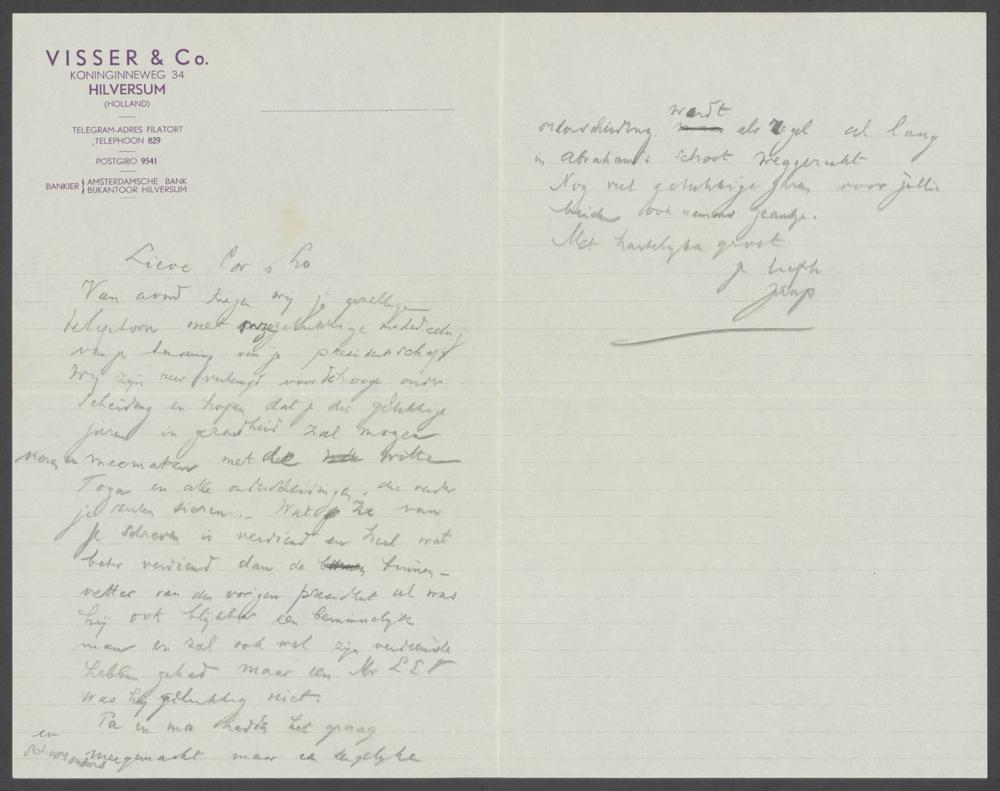 VISSER & Co.
KONINGINNEWEG 34
HILVERSUM
(HOLLAND)
TELEGRAM-ADRES FILATORT
TELEPHOON 829
POSTGIRO 9541
BANKIER { AMSTERDAMSCHE BANK
BIJKANTOOR HILVERSUM
Lieve Cor & Lo
Van avond kregen wij je gezellige
telephoon met mededeeling
van je benoeming van je presidentschap
Wij zijn zeer verheugd voor de hooge onder
scheiding en hopen dat je die gelukkige
jaren in gezondheid zal mogen
en meemaken met de witte
Toga en alle onderscheidingen, die verder
je sieren. Wat ze van
je schreven is verdiend en heel wat
beter verdiend dan de binnen-
vetter van den vorigen president al was
hij ook blijkbaar een beminnelijke
man en zal ook wel zijn verdienste
hebben gehad maar een Mr L E V
was hij gelukkig niet.
Pa en ma hadden het graag
en
meegemaakt maar en dergelijke
onderscheiding wordt als regel al lang
in Abraham's schoot weggerukt
Nog veel gelukkige jaren voor jullie
beiden ook namens Jeantje.
Met hartelijken groet
je liefh
Jaap